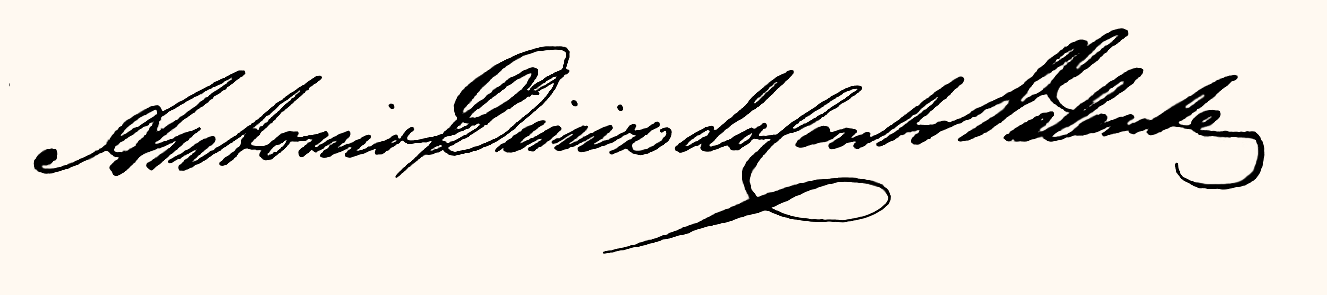 Antonio Diniz do Canto Valente